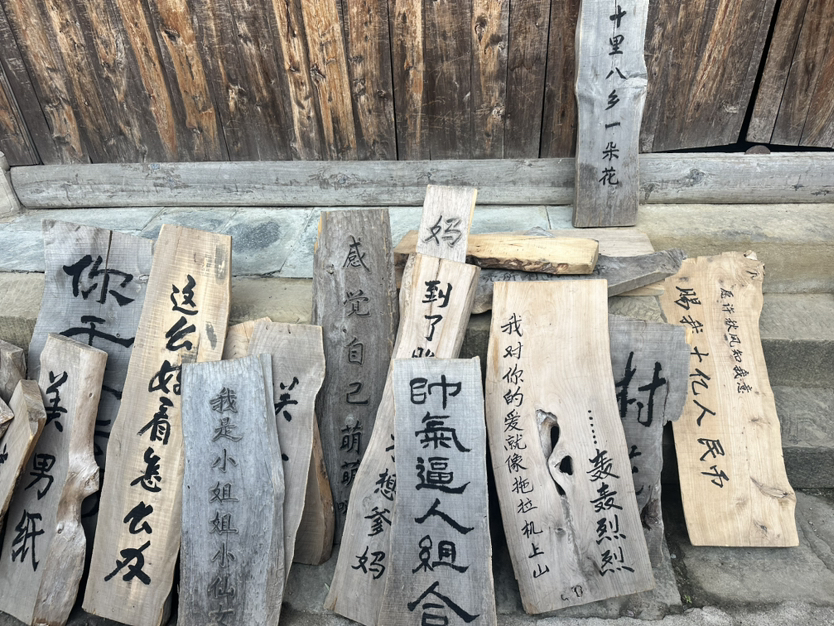 十里八乡一朵花
你
美男纸
这么好看怎么办
我是小姐姐小仙女
美
感觉自己萌萌
妈
到了
想爹妈
帅氣逼人組合
我对你的爱就像拖拉机上山
……轰轰烈烈
村
愿许秋风知我意
赐我十亿人民币